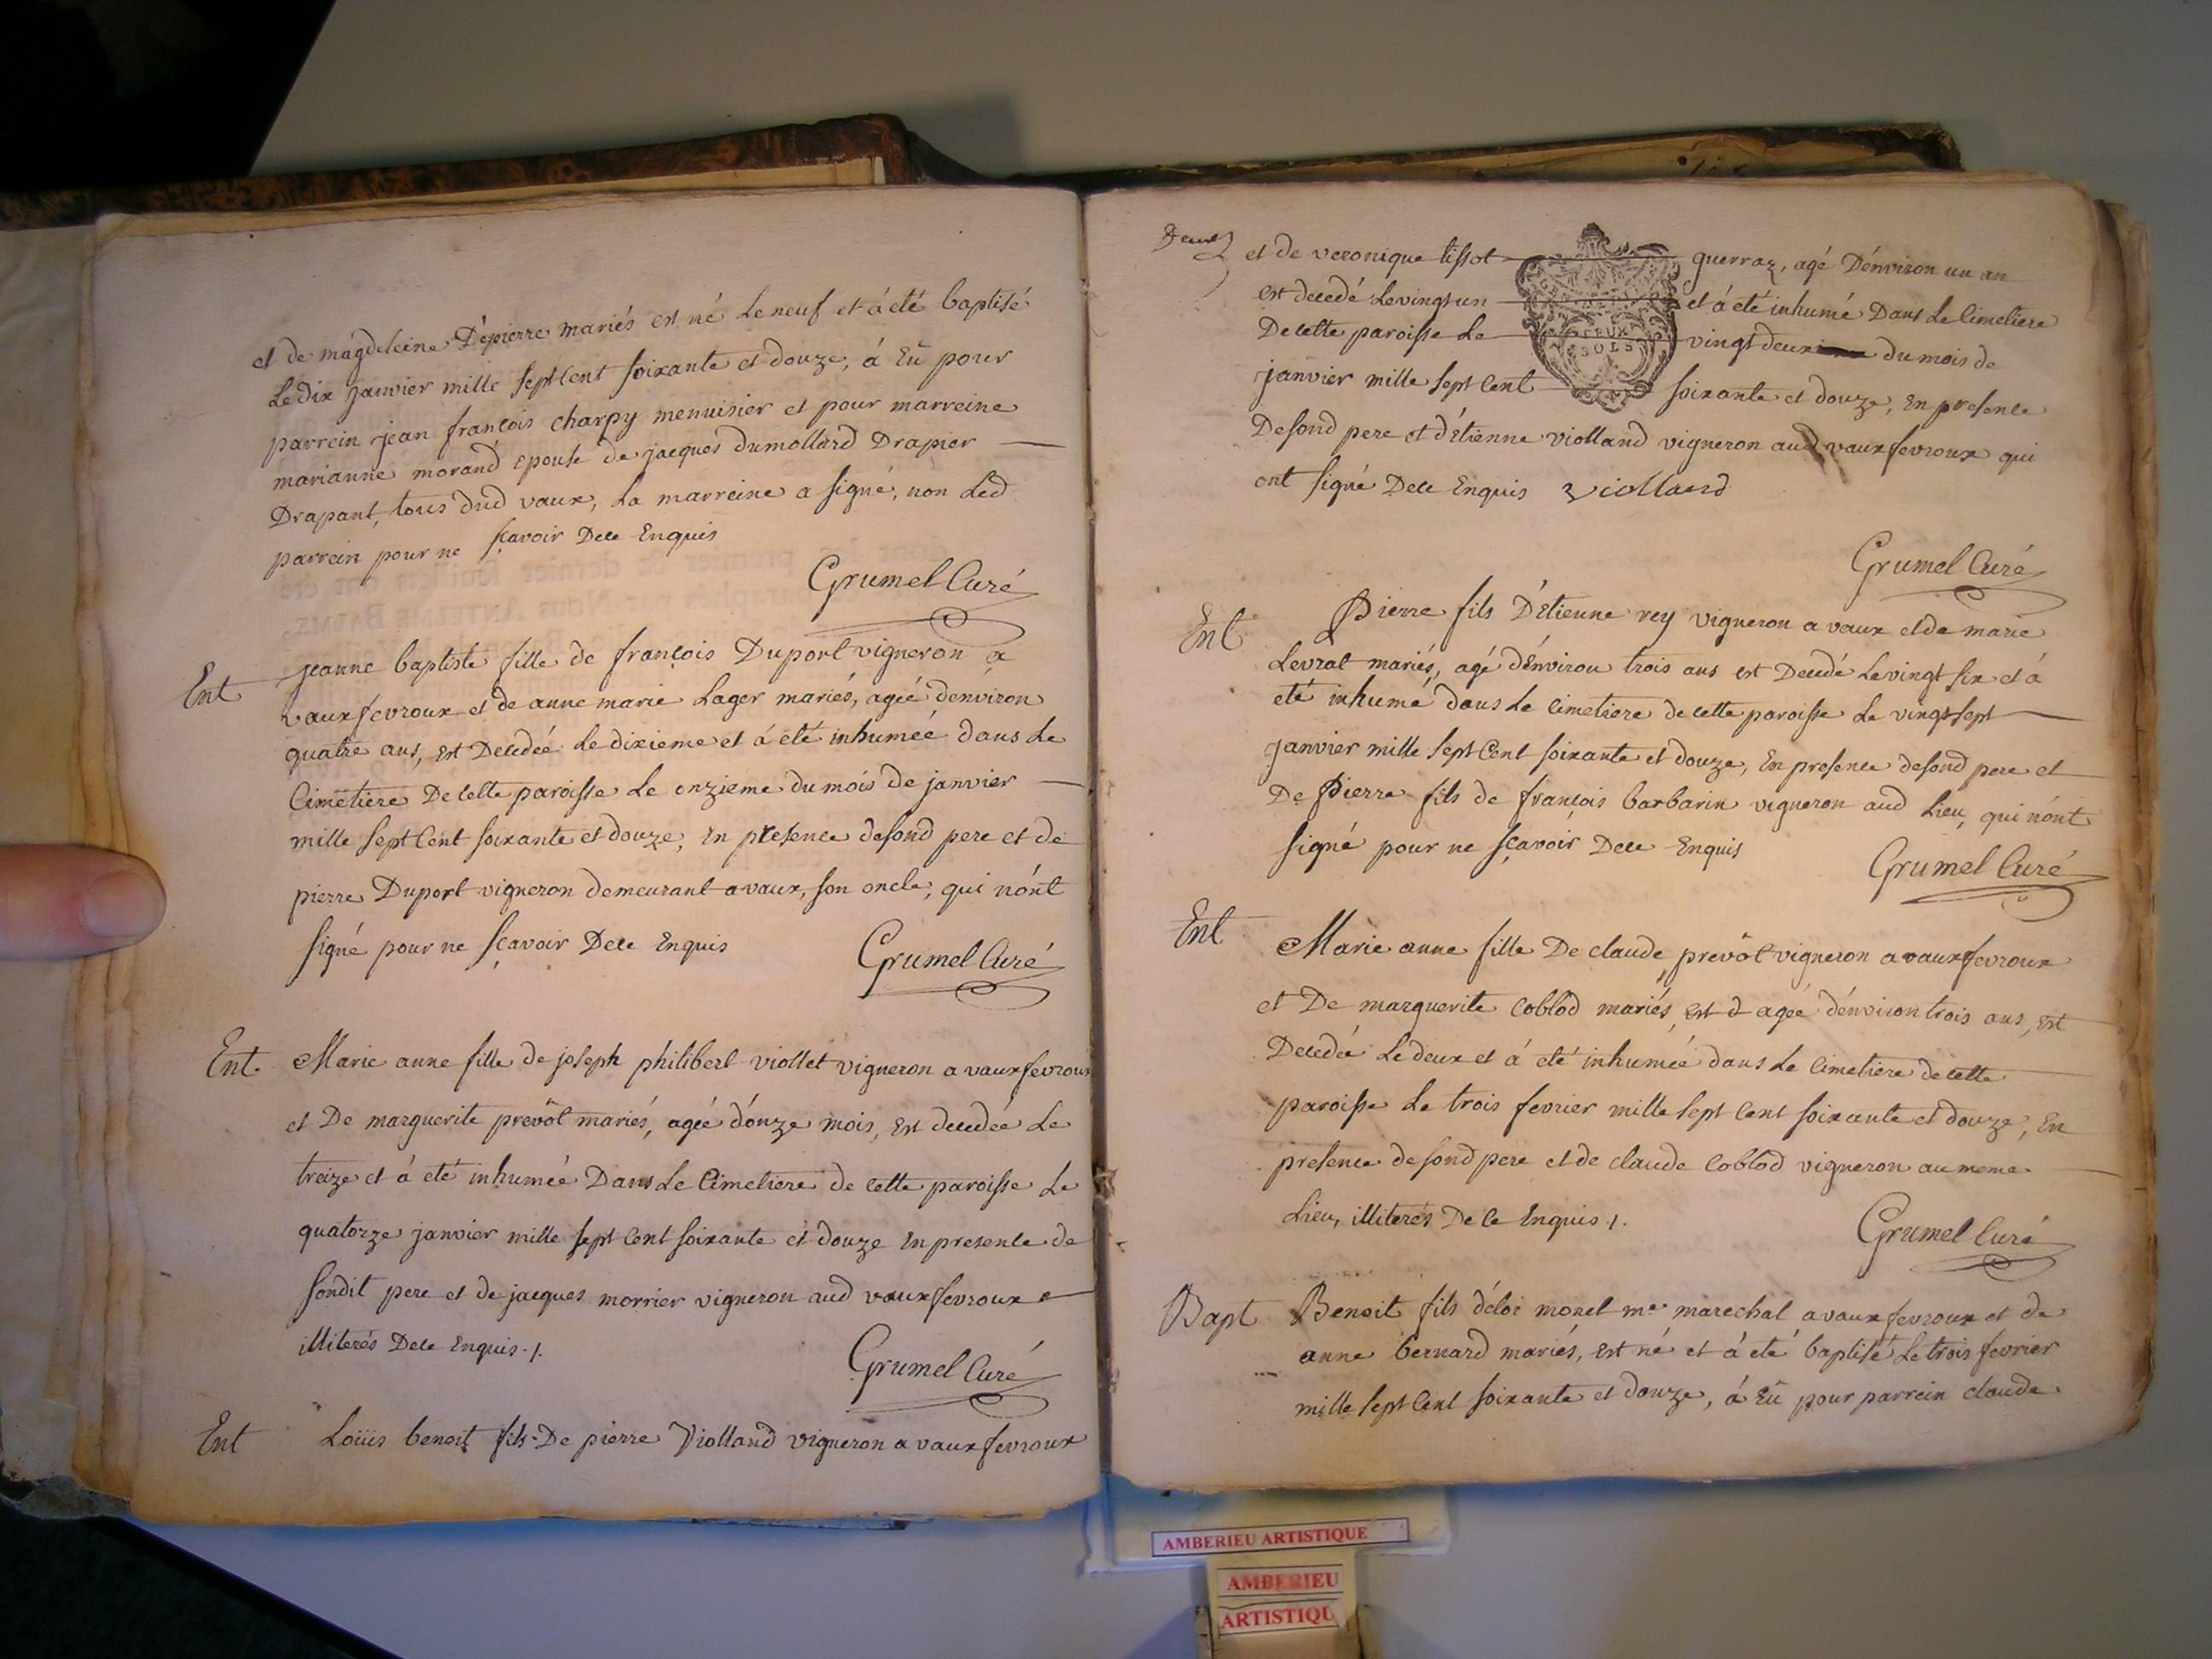 et de magdeleine Dépierre mariés est né Le neuf et á eté baptisé
Le dix janvier mille sept Cent soixante et douze, á Eû pour
parrein jean francois charpy menuisier et pour marreine
marianne morand epouse de jacques dumollard Drapier
Drapant, tous dud vaux, La marreine a signé, non Led
parrein pour ne sçavoir De ce Enquis
Grumel Curé
Ent jeanne baptiste fille de francois Duport vigneron a
vauxfevroux et de anne marie Lager mariés, ageé d'environ
quatre ans, est Decedeé Le dixieme et á eté inhumeé dans Le
Cimetiere De cette paroisse Le onzieme du mois de janvier
mille sept Cent soixante et douze, En presence desond pere et de
pierre Duport vigneron demeurant a vaux, son oncle, qui n'ont
signé pour ne sçavoir De ce Enquis
Grumel Curé
Ent. Marie anne fille de joseph philibert viollet vigneron a vauxfevroux
et De marguerite prevôt mariés, ageé d'onze mois, Est decedeé Le
treize et á eté inhumeé Dans Le Cimetiere de cette paroisse Le
quatorze janvier mille sept Cent soixante et douze En presence de
sondit pere et de jacques morrier vigneron aud vauxfevroux
illiterés De ce Enquis ./.
Grumel Curé
Ent Loüis benoit fils De pierre Violland vigneron a vauxfevroux
Deux
et de veronique tissot guerraz, agé D'environ un an
est decedé Le vingt un et á eté inhumé Dans Le Cimetiere
De cette paroisse Le vingt deux du mois de
janvier mille sept Cent soixante et douze, En presence
Desond pere et d'Etienne violland vigneron aud vauxfevroux qui
ont signé De ce Enquis violland
DEUX
SOLS
Grumel Curé
Ent Pierre fils D'Etienne rey vigneron a vaux et de marie
Levrat mariés, agé d'environ trois ans est Decedé Le vingt six et á
eté inhumé dans Le cimetiere de cette paroisse Le vingt sept
janvier mille sept Cent soixante et douze, En presence desond pere et
De Pierre fils de francois barbarin vigneron aud Lieu, qui n'ont
signé pour ne sçavoir De ce Enquis
Grumel Curé
Ent Marie anne fille De claude prevôt vigneron a vauxfevroux
et De marguerite Coblod mariés, est d ageé d'environ trois ans, est
Decedeé Le deux et á eté inhumeé dans Le Cimetiere de cette
paroisse Le trois fevrier mille sept Cent soixante et douze, En
presence desond pere et de claude Coblod vigneron au meme
Lieu, illiterés De Ce Enquis ./.
Grumel Curé
Bapt Benoit fils d'éloi monet me marechal a vauxfevroux et de
anne bernard mariés, est né et á eté baptisé Le trois fevrier
mille sept Cent soixante et douze, á Eû pour parrein claude
AMBERIEU ARTISTIQUE
AMBERIEU
ARTISTIQU